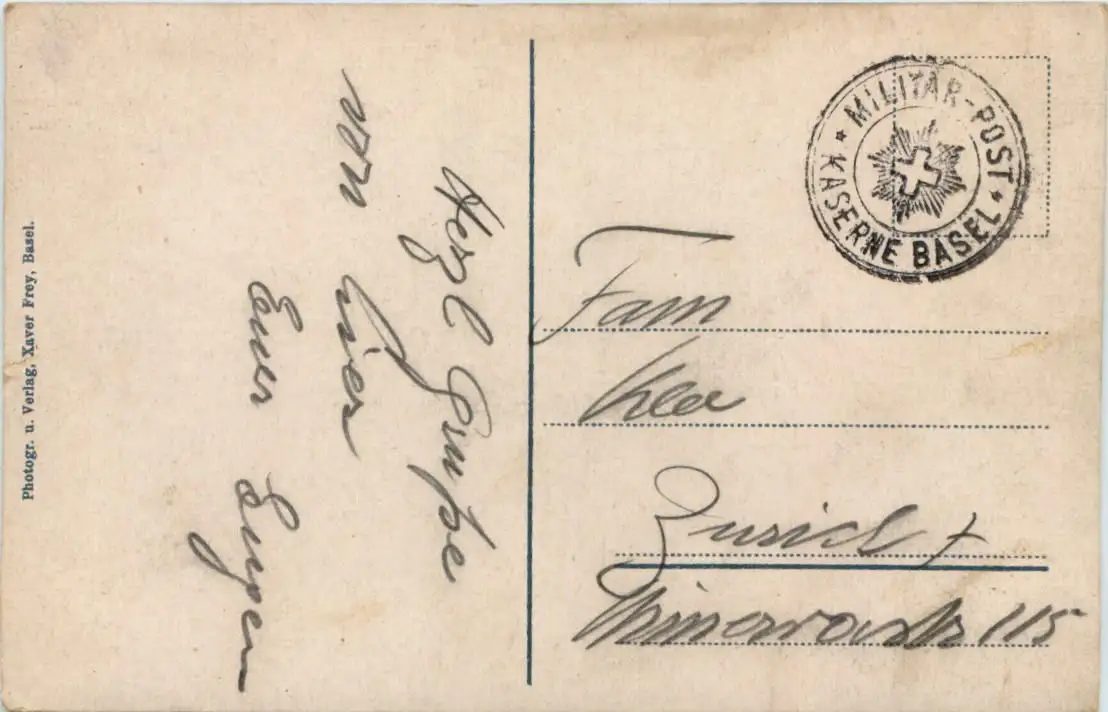 Photogr. u. Verlag, Xaver Frey, Basel.
Herzl Grüsse
von hier
Euer Eugen
MILITÄR-POST
KASERNE BASEL
Fam
Klee
Zürich 7
Minervastr 115